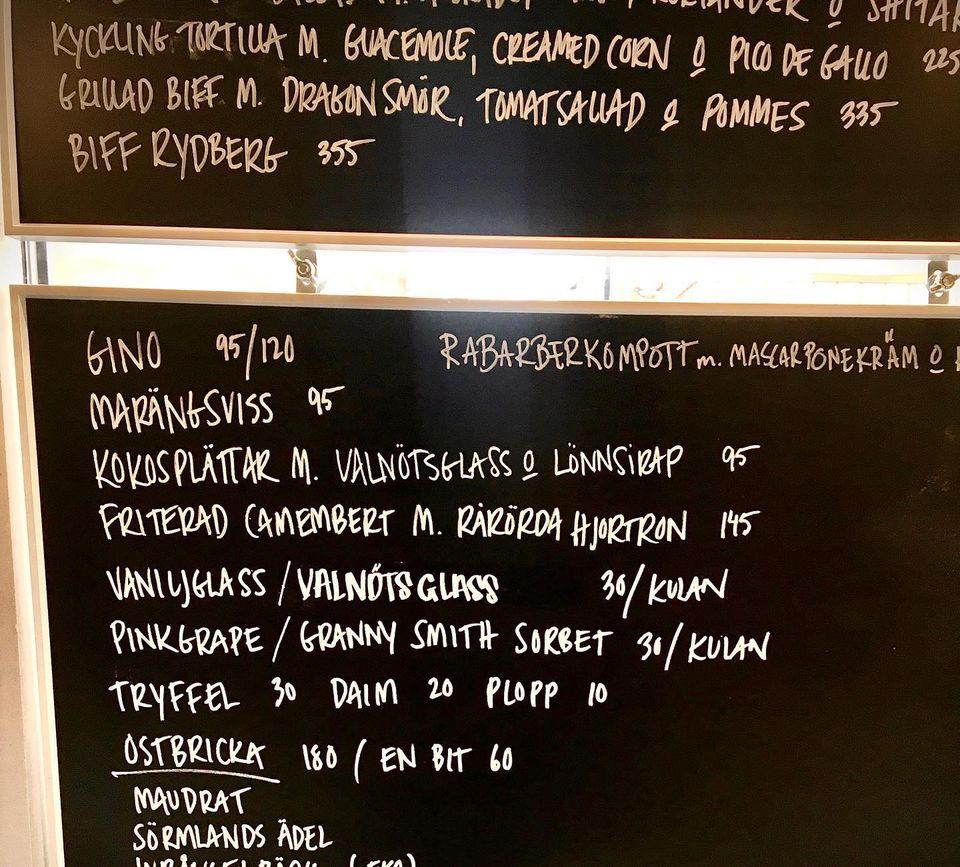 KORIANDER O SHITAK
KYCKLING TORTILLA M. GUACEMOLE, CREAMED CORN O PICO DE GALLO 225
GRILLAD BIFF M. DRAGONSMÖR, TOMATSALLAD O POMMES 335
BIFF RYDBERG 355
GINO 95/120 RABARBERKOMPOTT m. MASCARPONEKRÄM O
MARÄNGSVISS 95
KOKOSPLÄTTAR M. VALNÖTSGLASS O LÖNNSIRAP 95
FRITERAD CAMEMBERT M. RÅRÖRDA HJORTRON 145
VANILJGLASS / VALNÖTSGLASS 30/KULAN
PINKGRAPE / GRANNY SMITH SORBET 30/KULAN
TRYFFEL 30 DAIM 20 PLOPP 10
OSTBRICKA 180 / EN BIT 60
MAUDRAT
SÖRMLANDS ÄDEL